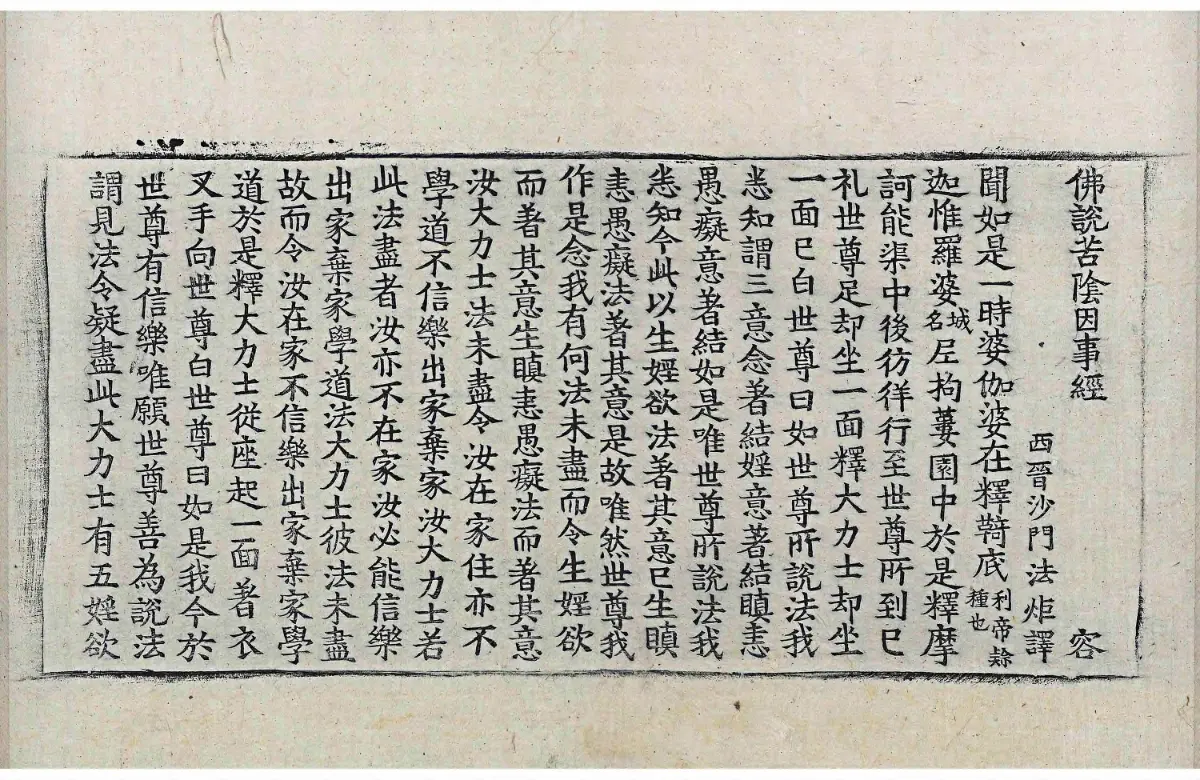 佛說苦陰因事經 容
西晉沙門法炬譯
聞如是一時婆伽婆在釋鞫底利帝隸種也
迦惟羅婆城名尼拘蔞園中於是釋摩
訶能渠中後彷徉行至世尊所到已
礼世尊足却坐一面釋大力士却坐
一面已白世尊曰如世尊所說法我
悉知謂三意念著結婬意著結瞋恚
愚癡意著結如是唯世尊所說法我
悉知今此以生婬欲法著其意已生瞋
恚愚癡法著其意是故唯然世尊我
作是念我有何法未盡而令生婬欲
而著其意生瞋恚愚癡法而著其意
汝大力士法未盡令汝在家住亦不
學道不信樂出家棄家汝大力士若
此法盡者汝亦不在家汝必能信樂
出家棄家學道法大力士彼法未盡
故而令汝在家不信樂出家棄家學
道於是釋大力士從座起一面著衣
叉手向世尊白世尊曰如是我今於
世尊有信樂唯願世尊善為說法
謂見法令疑盡此大力士有五婬欲